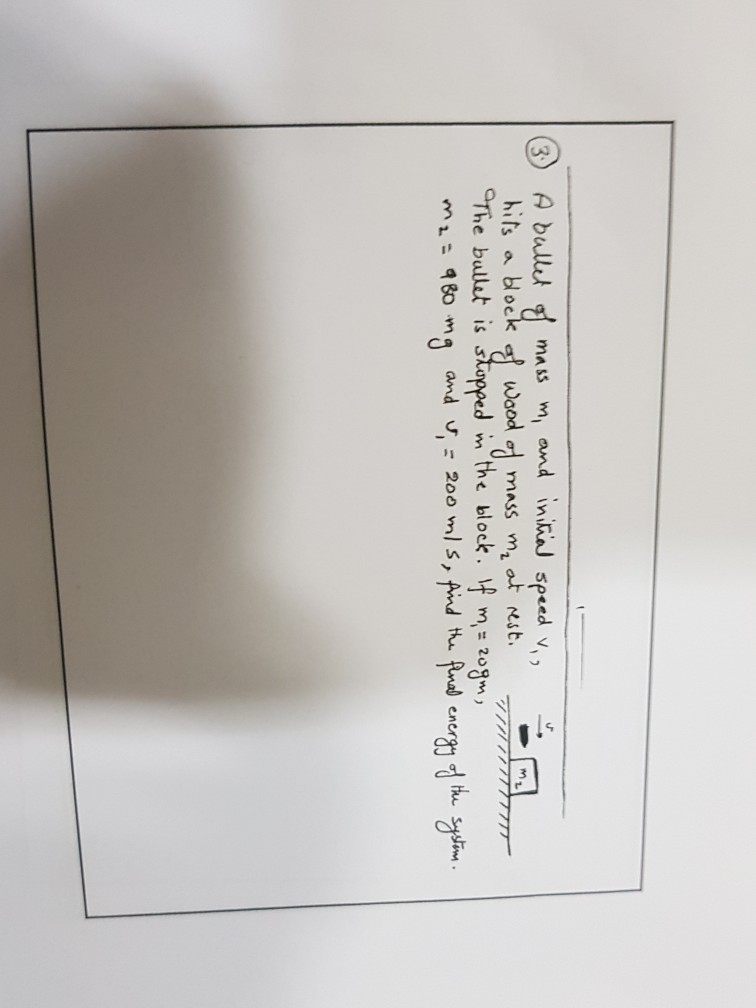 3. A bullet of mass m₁ and initial speed v₁,
hits a block of wood of mass m₂ at rest.
The bullet is stopped in the block. If m₁ = 20gm,
m₂ = 980 mg and v₁ = 200 m/s, find the final energy of the system.
v
m₂